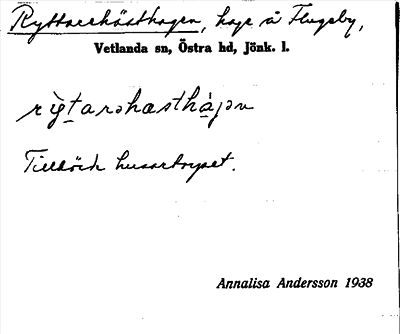 Ryttarehästhagen, hage å Flugeby,
Vetlanda sn, Östra hd, Jönk. l.
rỳtarəhæsthàgən
Tillhörde husartorpet.
Annalisa Andersson 1938